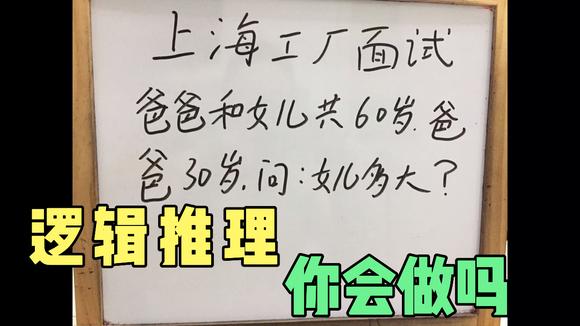 上海工厂面试
爸爸和女儿共60岁.爸
爸30岁.问:女儿多大?
逻辑推理
你会做吗